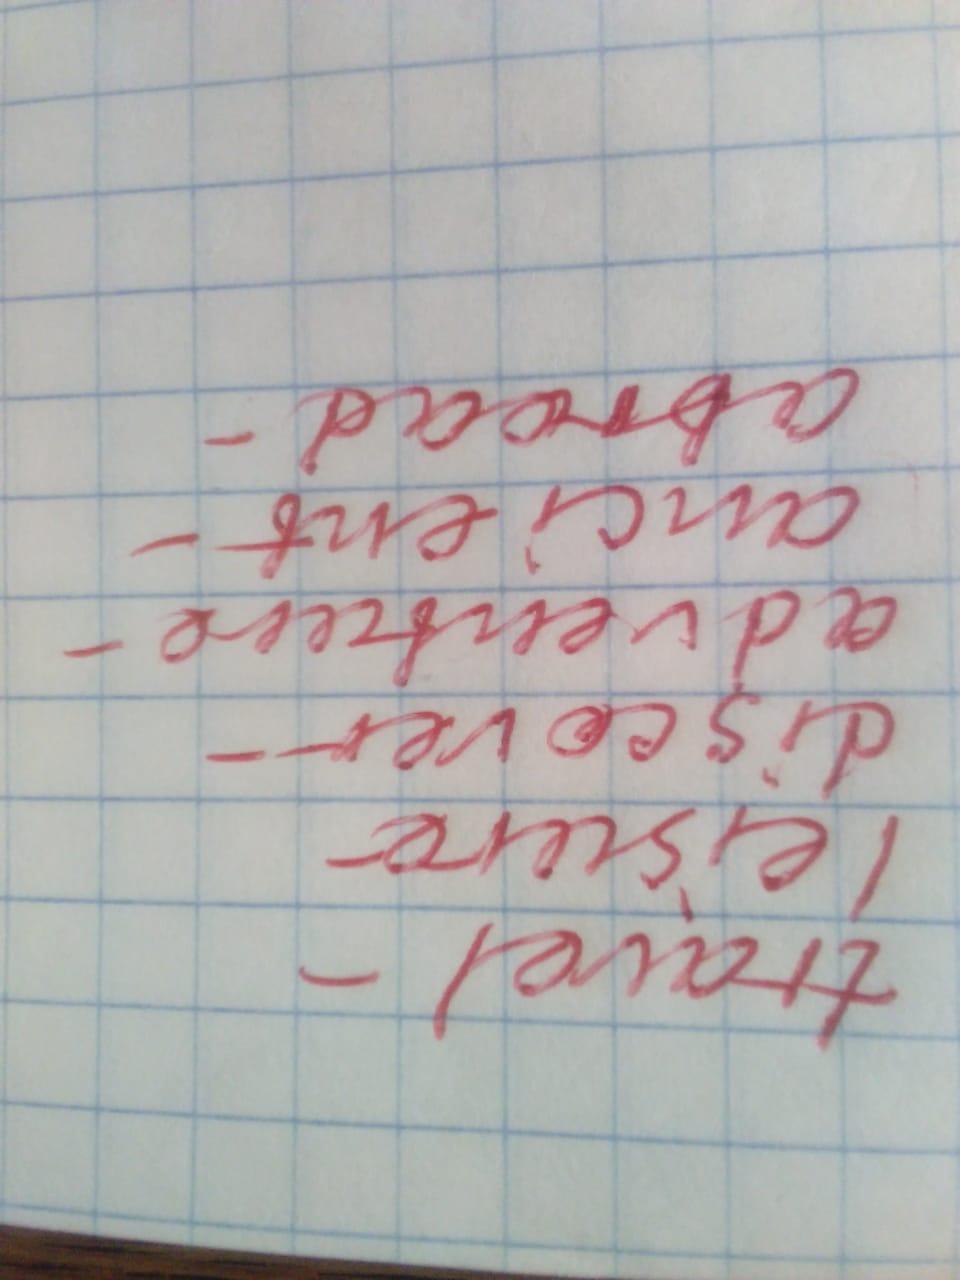 travel -
leisure -
discover -
adventure -
ancient -
abroad -